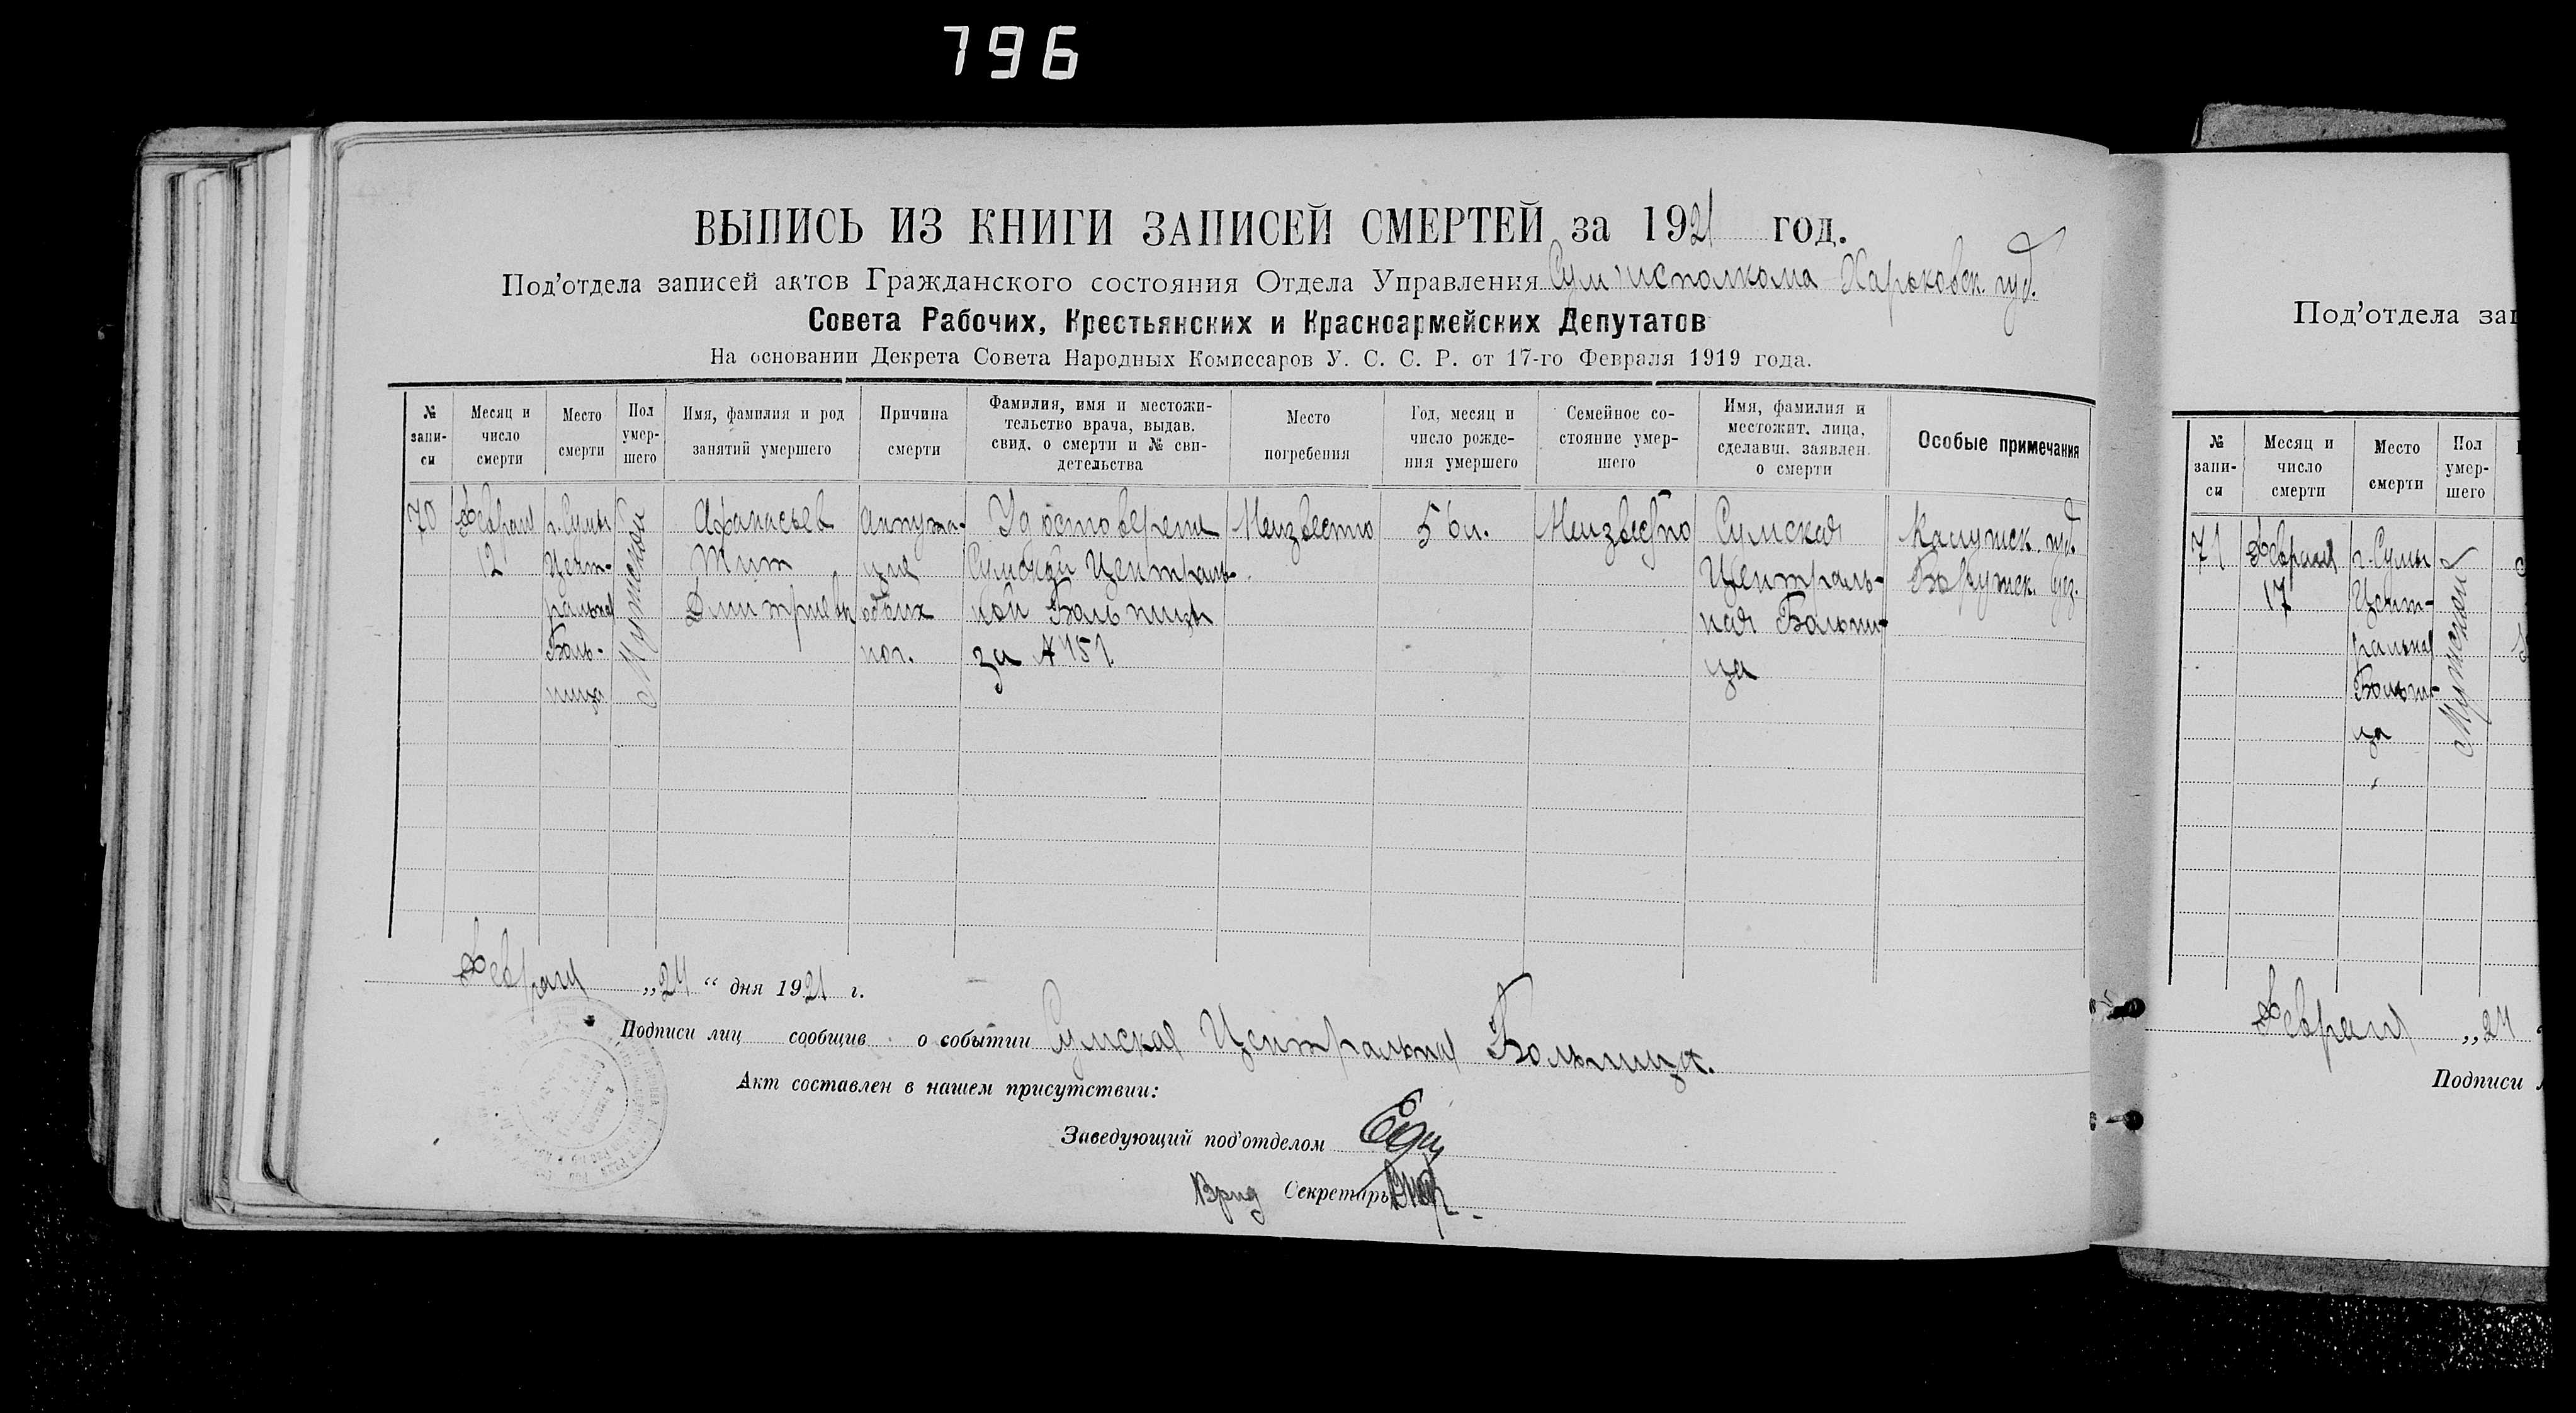 796
ВЫПИСЬ ИЗ КНИГИ ЗАПИСЕЙ СМЕРТЕЙ за 1921 год.
Под'отдела записей актов Гражданского состояния Отдела Управления Сумисполкома Харьковск. губ.
Совета Рабочих, Крестьянских и Красноармейских Депутатов
На основании Декрета Совета Народных Комиссаров У. С. С. Р. от 17-го Февраля 1919 года.
№ запи- си
Месяц и число смерти
Место смерти
Пол умер- шего
Имя, фамилия и род занятий умершего
Причина смерти
Фамилия, имя и местожи- тельство врача, выдав. свид. о смерти и № сви- детельства
Место погребения
Год, месяц и число рожде- ния умершего
Семейное со- стояние умер- шего
Имя, фамилия и местожит. лица, сделавш. заявлен. о смерти
Особые примечания
70
Февраля
12
г. Сумы
Цент-
ральная
Боль-
ница
Мужской
Афанасьев
Тит
Дмитриев
ампута-
ция
обеих
ног.
Удостоверени
Сумской Централь-
ной Больницы
за № 151
Неизвестно
56 л.
Неизвестно
Сумская
Централь-
ная Больни-
ца
Калужск. губ.
уез.
Февраля „24“ дня 1921 г.
Подписи лиц сообщив о событии Сумская Центральная Больница.
Акт составлен в нашем присутствии:
Заведующий под'отделом
Врид Секретарь
Под'отдела за
№ запи- си
Месяц и число смерти
Место смерти
Пол умер- шего
71
Февраля
17
г. Сумы
Цент-
ральная
Больни-
ца
Мужской
Февраля „24
Подписи